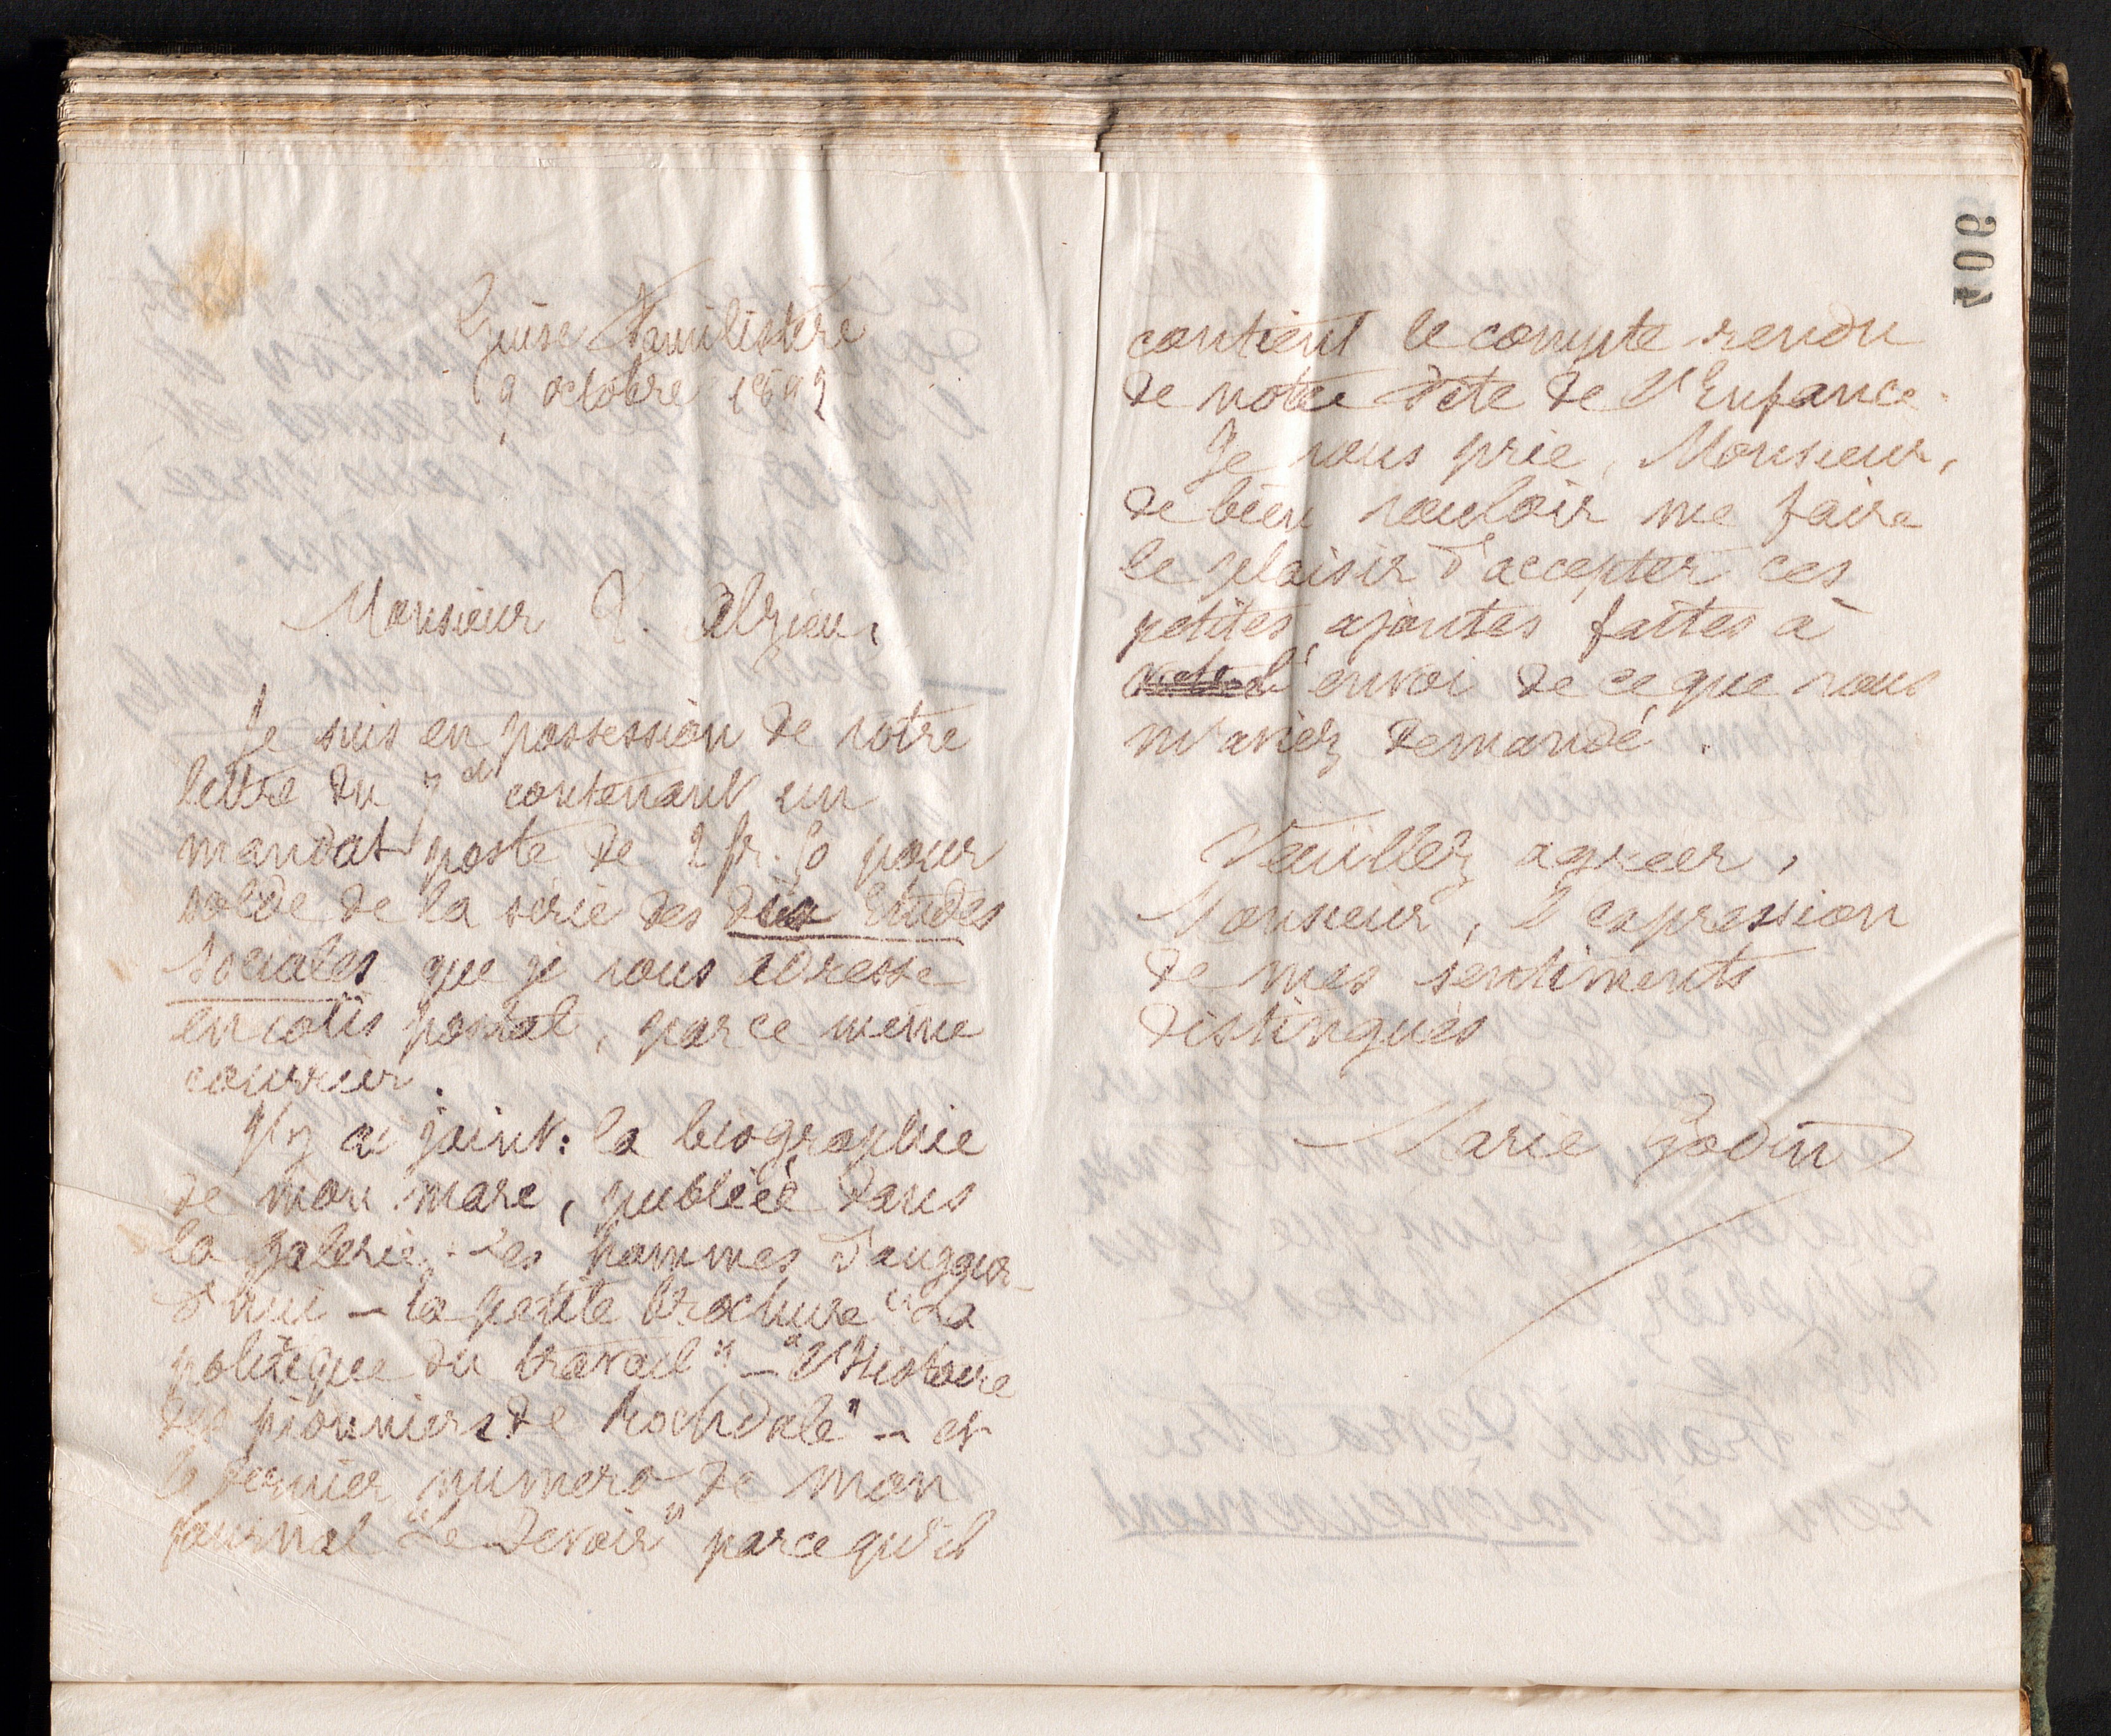 Guise Familistère
9 octobre 1892
Monsieur Alzieu,
Je suis en possession de votre
lettre du 7 ct contenant un
mandat poste de 2 fr. 50 pour
solde de la série des dix Etudes
Sociales que je vous adresse
en colis postal, par ce même
courrier.
J'y ai joint : la biographie
de mon mari, publiée dans
la galerie. Les hommes d'aujour-
d'hui – la petite brochure "La
politique du travail" – "L'Histoire
des pionniers de Rochdale" – et
le dernier numéro de mon
journal "Le Devoir" parce qu'il
406
contient le compte rendu
de notre fête de l'Enfance.
Je vous prie, Monsieur,
de bien vouloir me faire
le plaisir d'accepter ces
petites ajoutes faites à
l'envoi de ce que vous
m'aviez demandé.
Veuillez agréer,
Monsieur, l'expression
de mes sentiments
distingués
Marie Godin